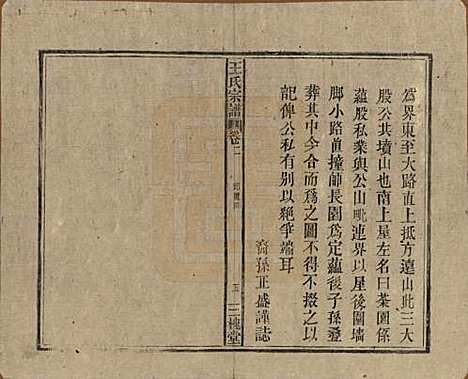 為界東至大路直上抵方遠山此三大
股公共墳山也南上星左名曰茶園係
蘊股私業與公山毗連界以星後圍墻
脚小路直撞師長園為定蘊後子孫登
葬其中今合而為之圖不得不掇之以
記俾公私有別以絶爭端耳
裔孫正盛謹誌
王氏宗譜
卷二
五
三槐堂